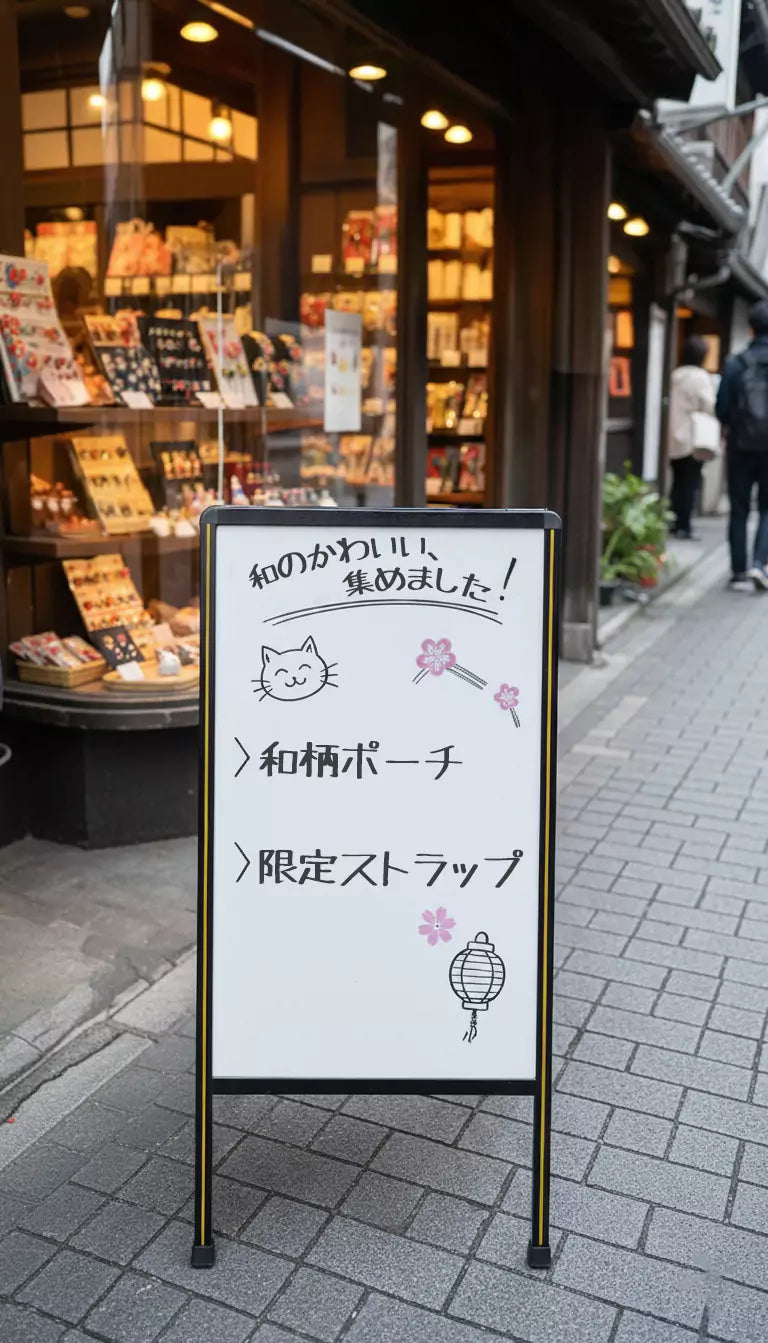 和のかわいい、
集めました！
〉和柄ポーチ
〉限定ストラップ